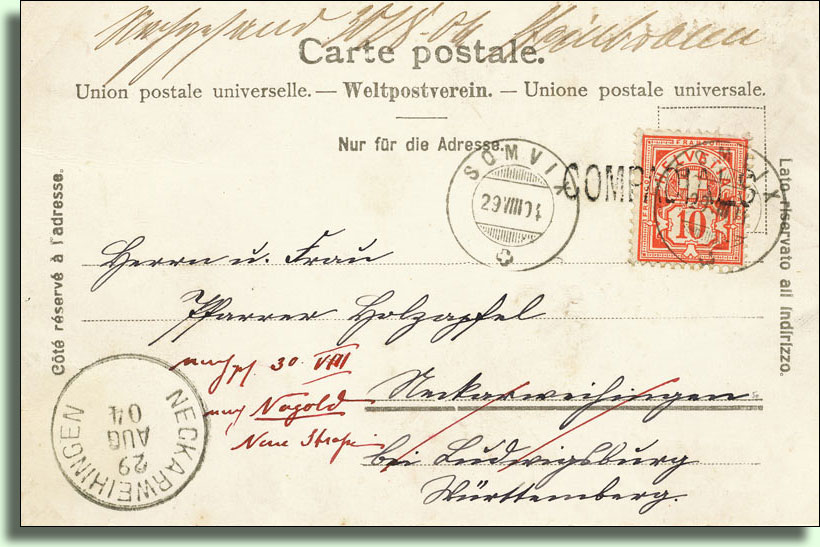 Nachgesand 30/8.04
Carte postale.
Union postale universelle. — Weltpostverein. — Unione postale universale.
Nur für die Adresse.
Côté réservé à l'adresse.
Lato riservato all' indirizzo.
SOMVIX
29 VIII 04
COMPADIALS
SOMVIX
FRANCO
HELVETIA
10
Herrn u. Frau
Pfarrer Holzapfel
Neckarweihingen
bei Ludwigsburg
Württemberg.
30. VIII
nach Nagold
Neue Strasse
NECKARWEIHINGEN
29
AUG
04